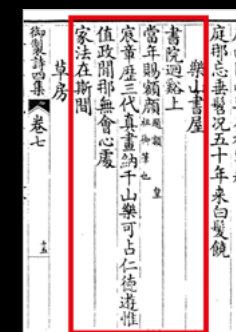 庭那忘垂髫況五十年来白髮饒
樂山書屋
書院迴谿上
當年賜額顏題額皇
祖御筆也
宸章歷三代真畫納千山樂可占仁徳遊惟
值政閒那無會心處
家法在斯間
草房
御製詩四集 卷七
十五